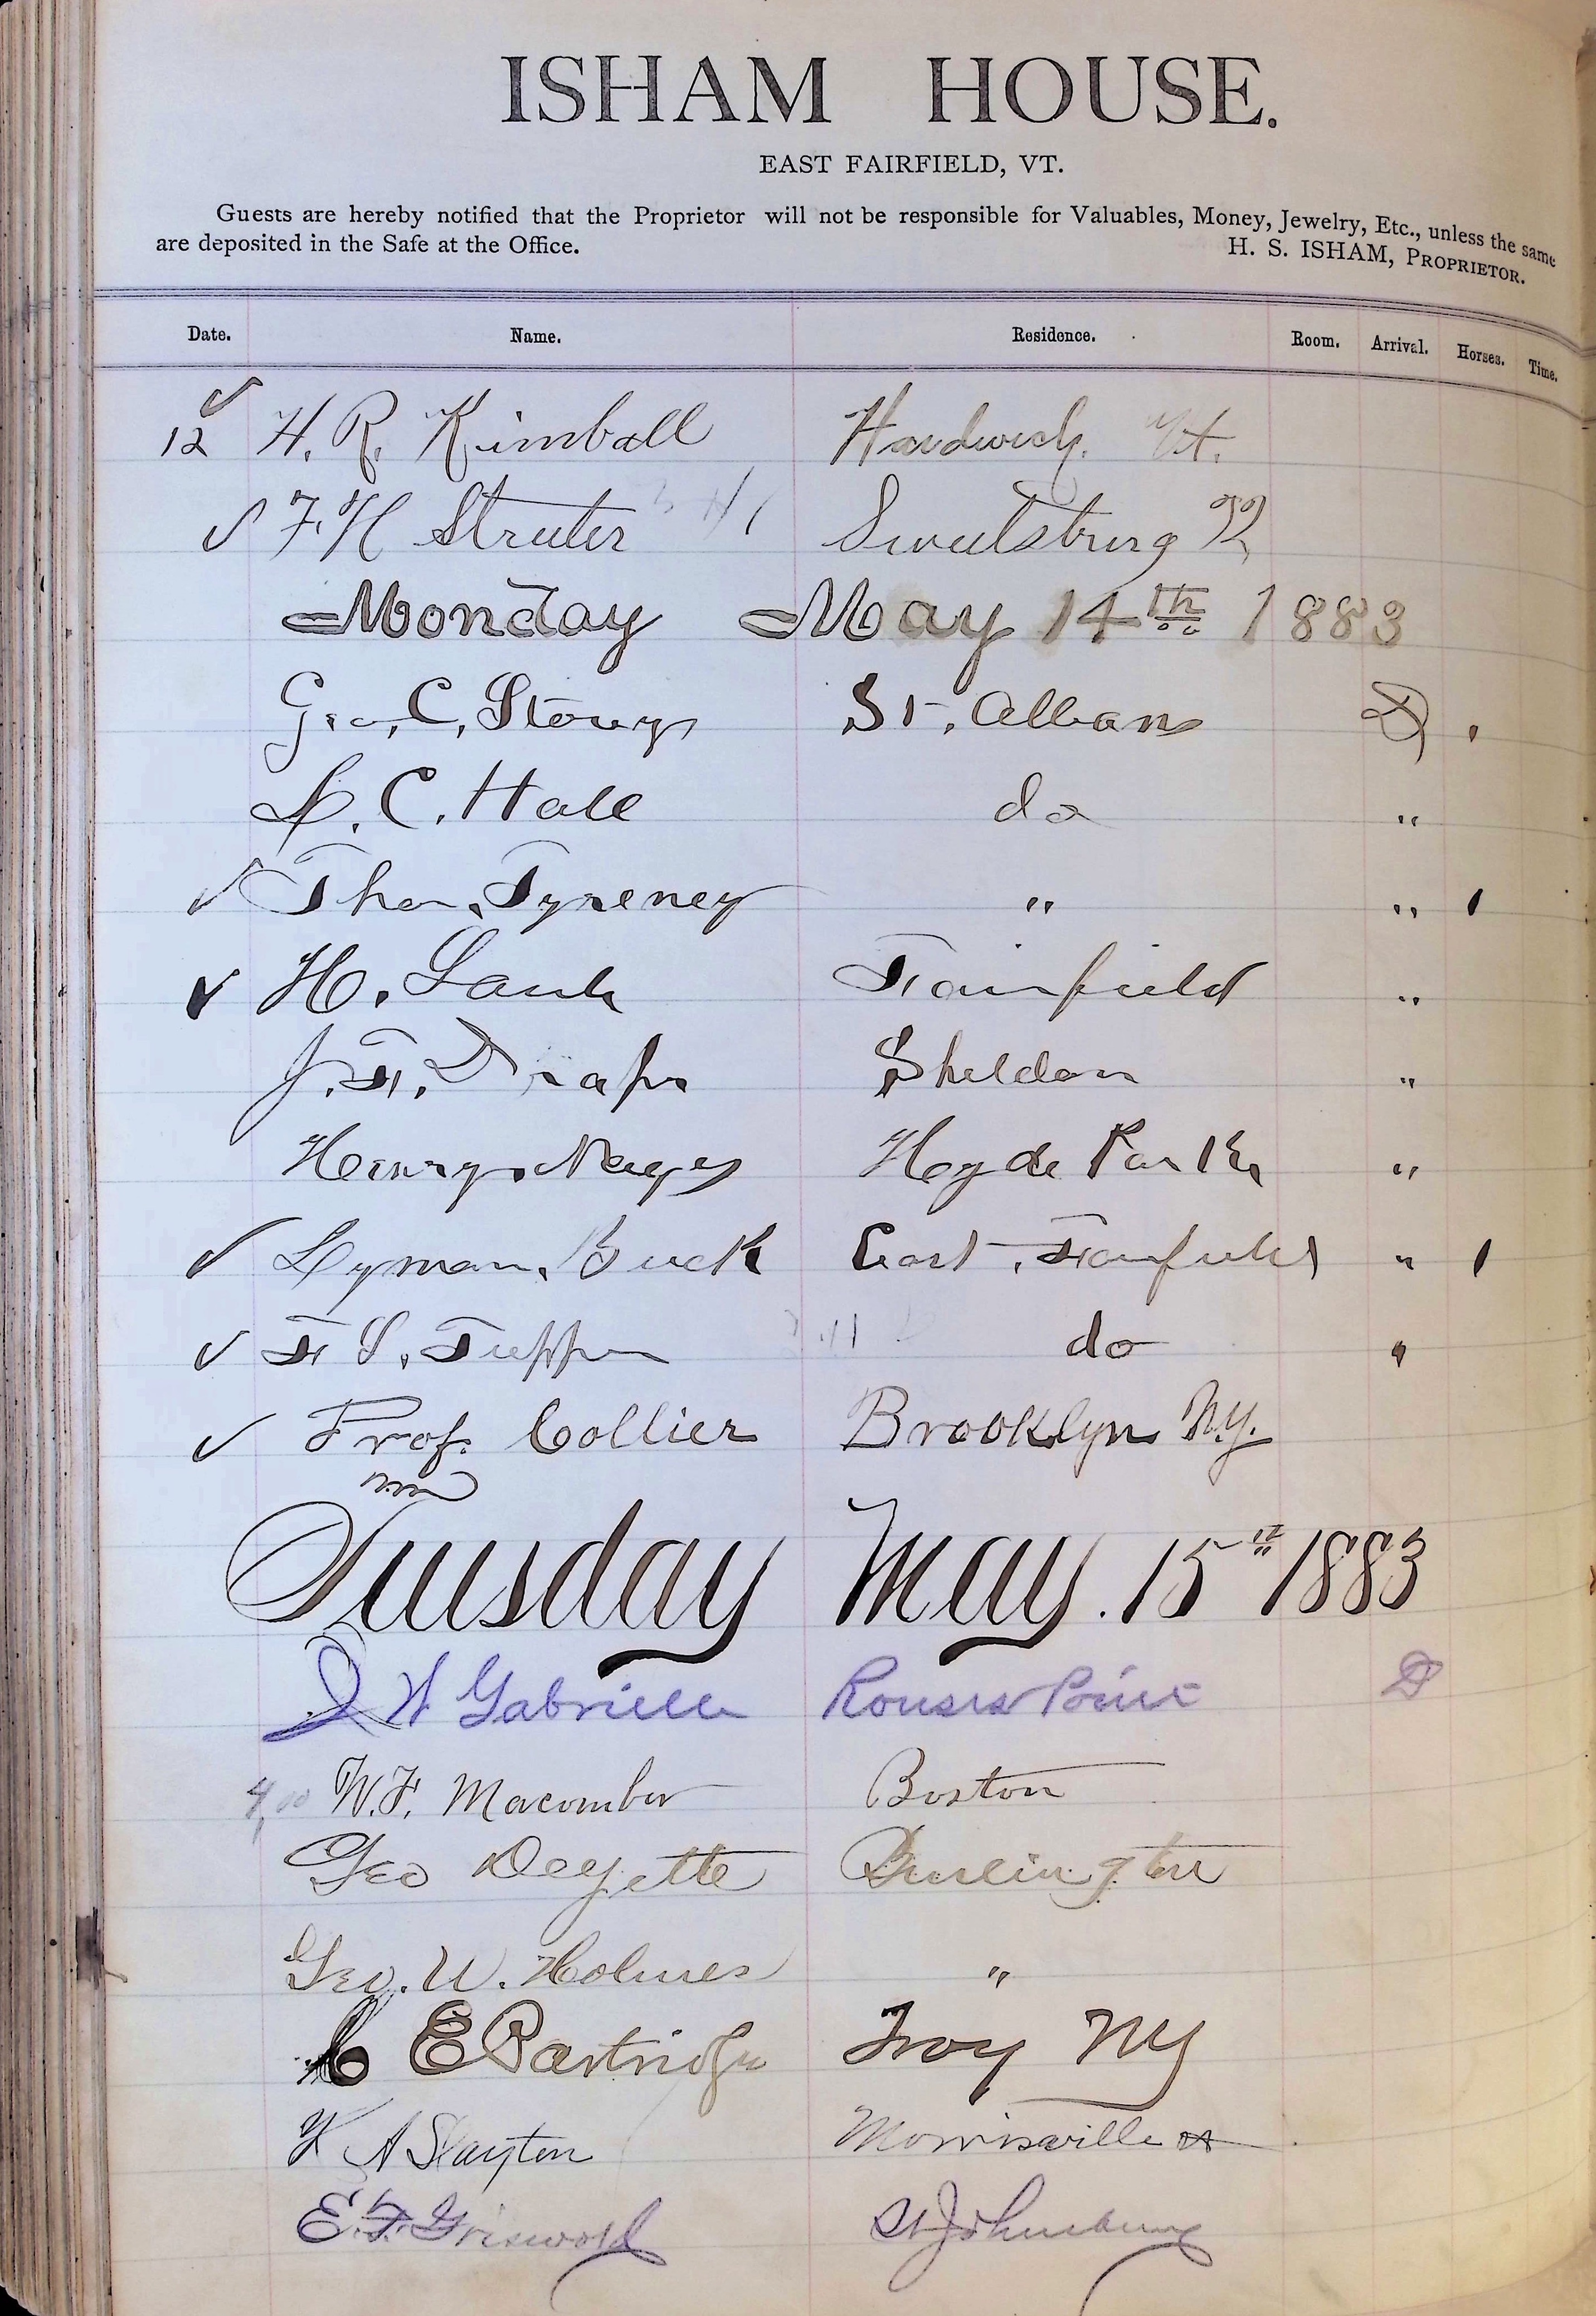 ISHAM HOUSE.
EAST FAIRFIELD, VT.
Guests are hereby notified that the Proprietor will not be responsible for Valuables, Money, Jewelry, Etc., unless the same
are deposited in the Safe at the Office. H. S. ISHAM, PROPRIETOR.
Date. Name. Residence. Room. Arrival. Horses. Time.
✓
12 H. R. Kimball Hardwick. Vt.
✓ F. H Streeter Sweetsburg
Monday May 14th 1883
Geo, C, Story St, Albans D
L. C. Hall do "
✓ Tho, " "
✓ H. Fairfield "
J. F. Sheldon "
Henry Hyde Park "
✓ Lyman Buck East, Fairfield "
✓ F S, do "
✓ Prof. Collier Brooklyn N.Y.
Tuesday May. 15th 1883
W Gabrielle Rouses Point D
4,00 W.F. Macomber Boston
Geo Deyette Burlington
Geo. W. Holmes "
C E Partridge Troy NY
A Slayton Morrisville
E. F. Griswold St Johnsbury